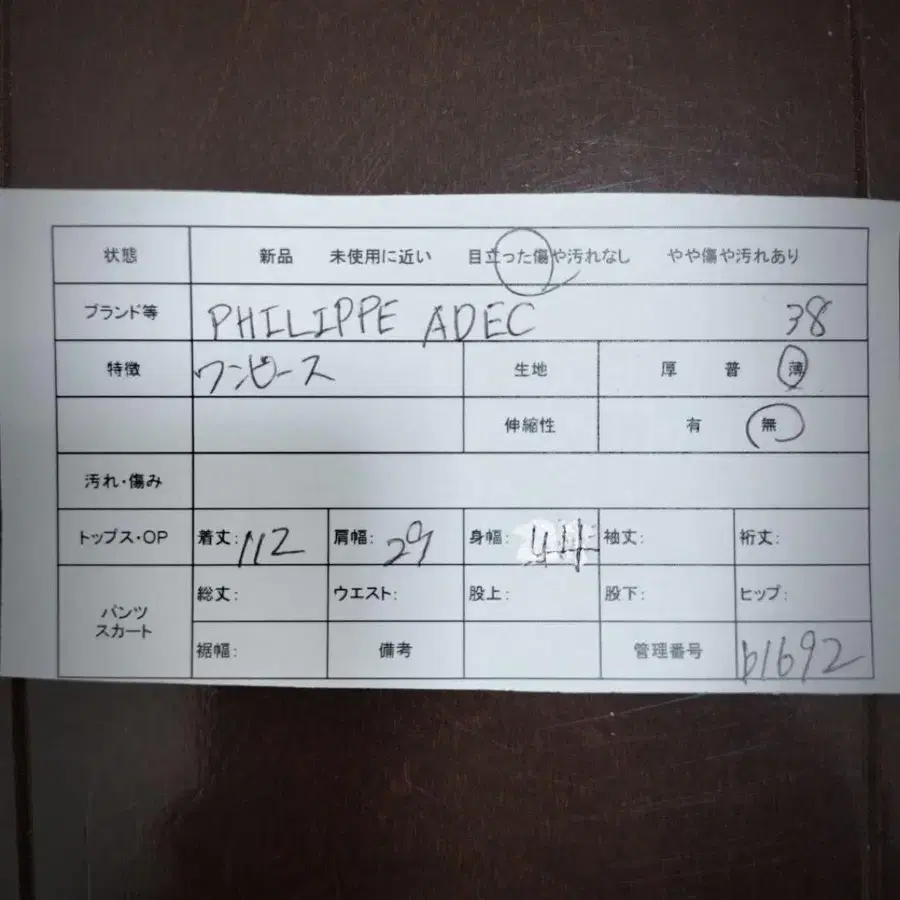 状態 新品 未使用に近い 目立った傷や汚れなし やや傷や汚れあり
ブランド等 PHILIPPE ADEC 38
特徴 ワンピース 生地 厚 普 薄
伸縮性 有 無
汚れ・傷み
トップス・OP 着丈: 112 肩幅: 29 身幅: 44 袖丈: 裄丈:
パンツ スカート 総丈: ウエスト: 股上: 股下: ヒップ:
裾幅: 備考 管理番号 b1692